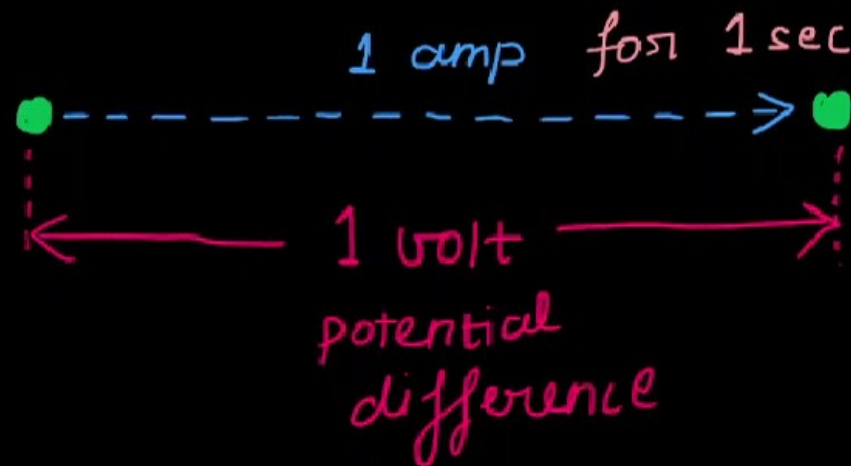 1 amp for 1 sec
1 volt
potential
difference